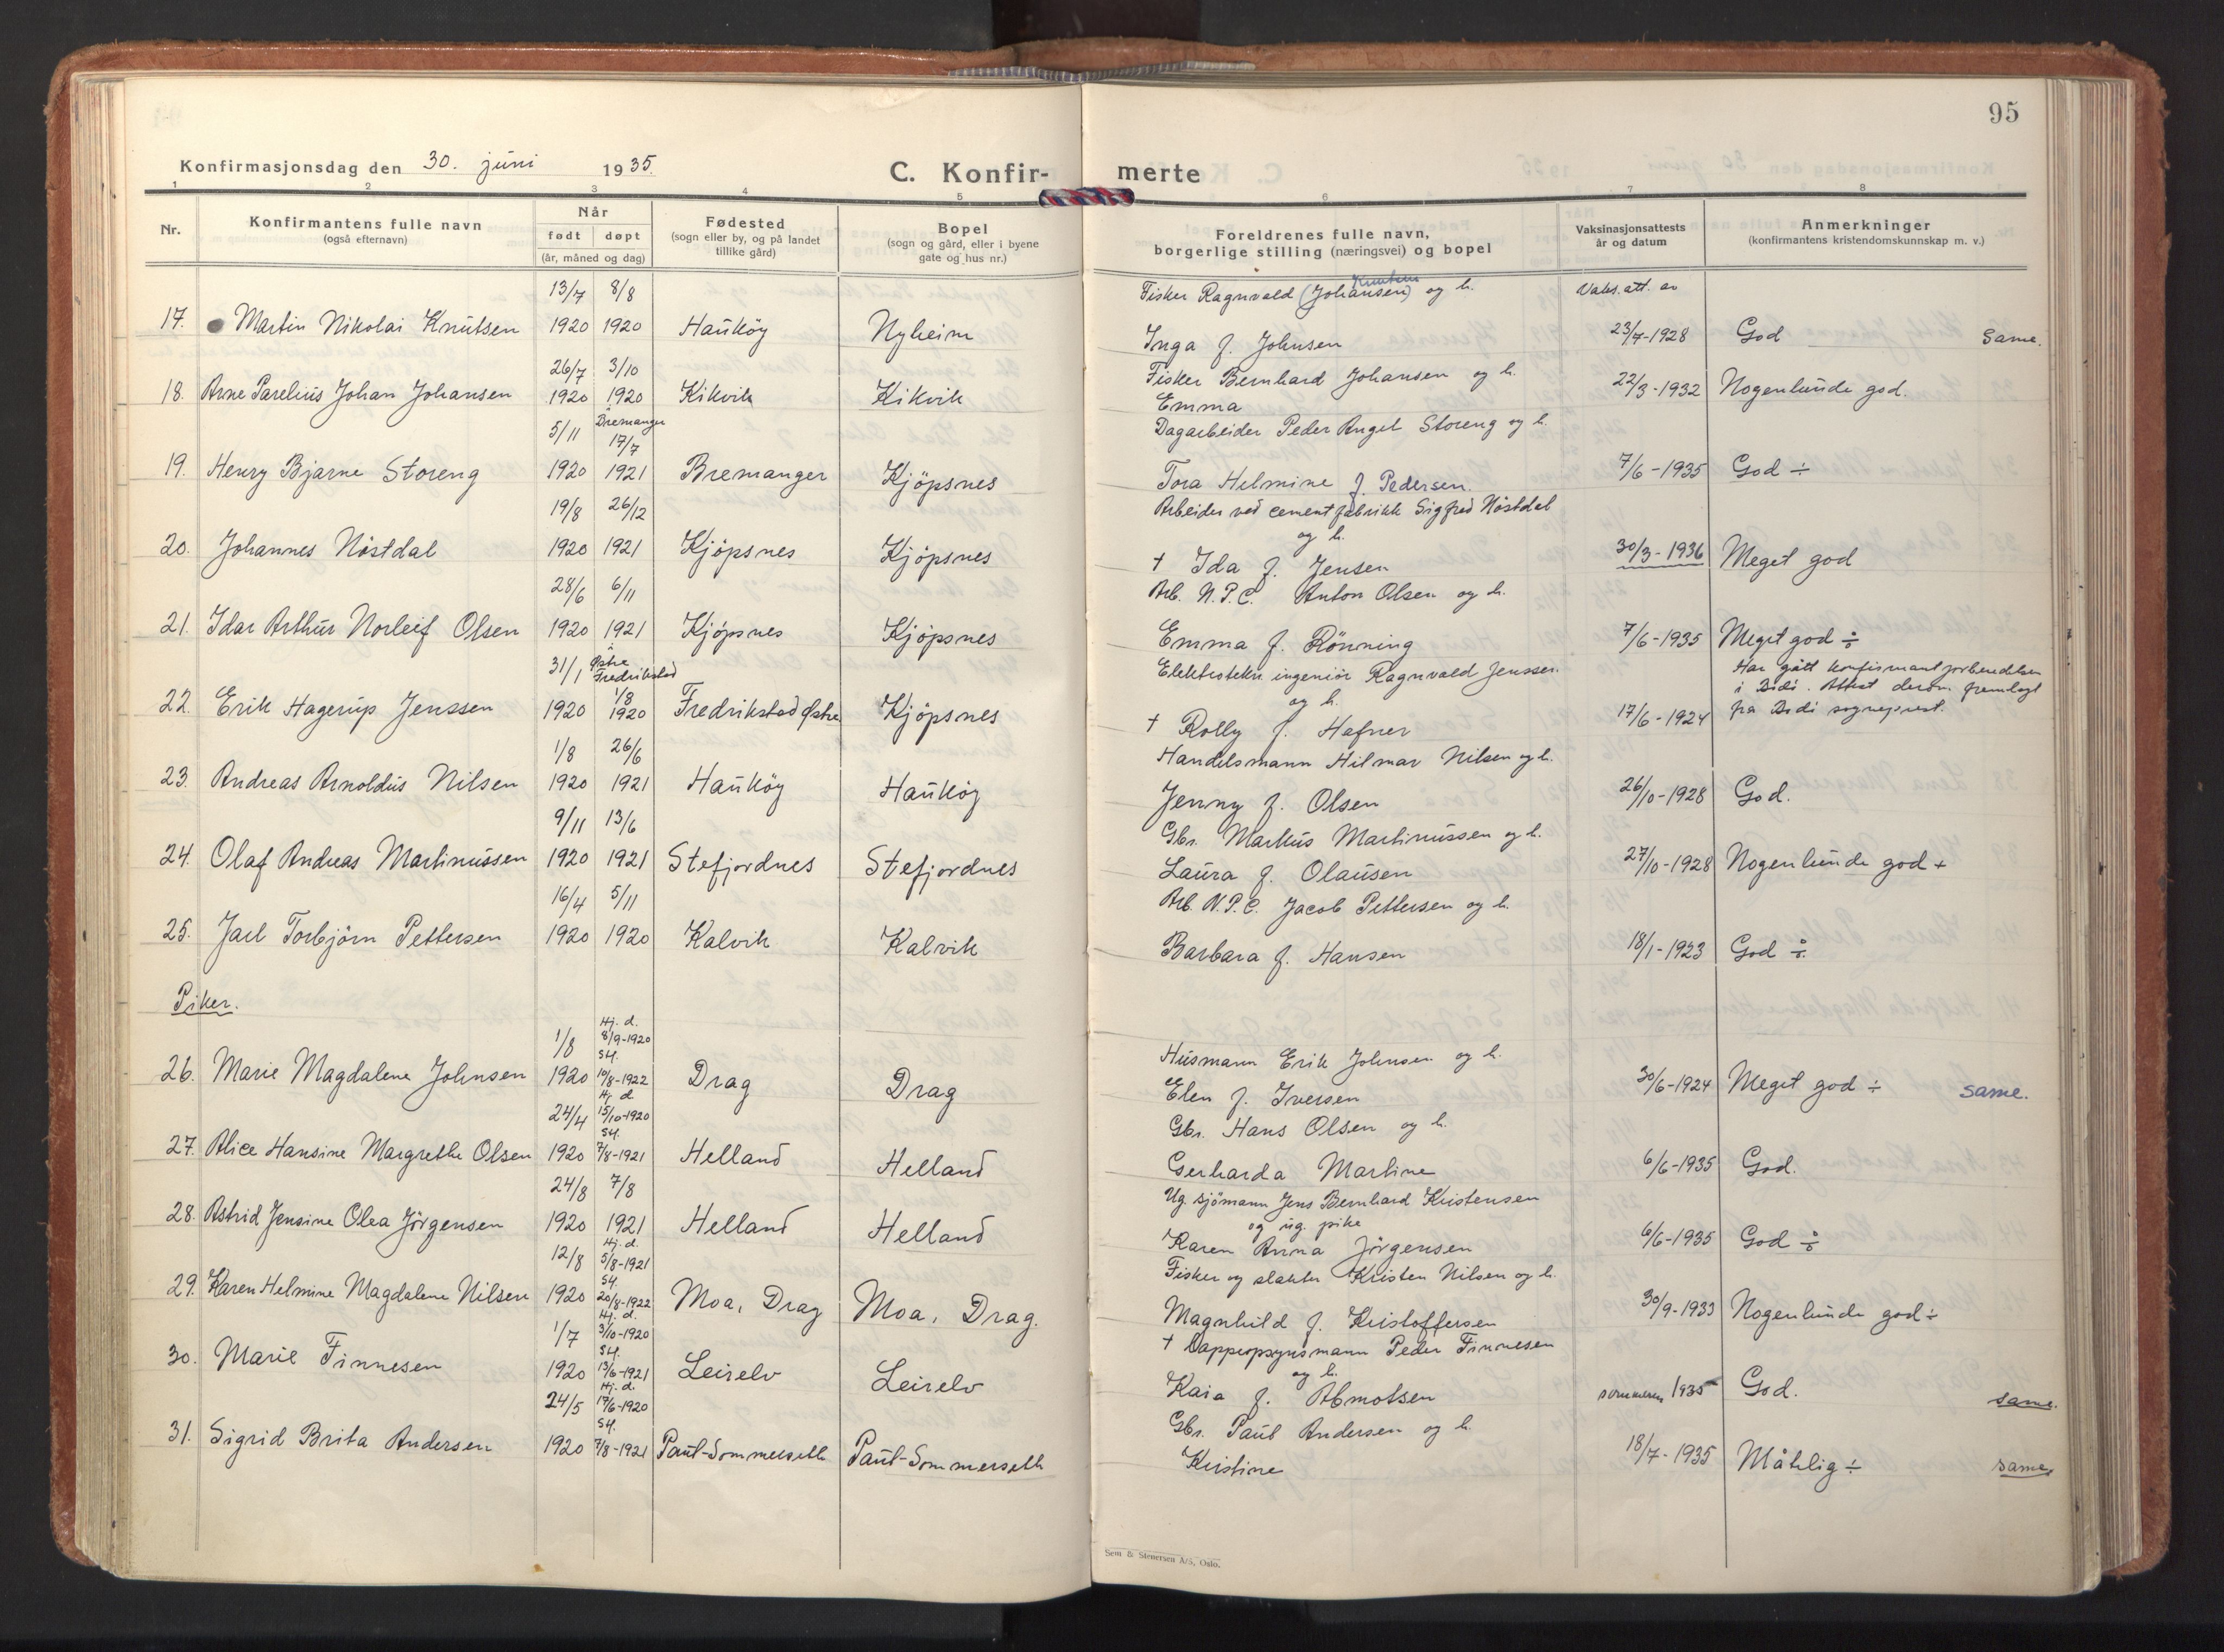 95
Konfirmasjonsdag den 30. juni 1935.
C. Konfir- merte
1 2 3 4 5 6 7 8
Nr.
Konfirmantens fulle navn
(også efternavn)
Når
født døpt
(år, måned og dag)
Fødested
(sogn eller by, og på landet
tillike gård)
Bopel
(sogn og gård, eller i byene
gate og hus nr.)
Foreldrenes fulle navn,
borgerlige stilling (næringsvei) og bopel
Vaksinasjonsattests
år og datum
Anmerkninger
(konfirmantens kristendomskunnskap m. v.)
13/7 8/8 Fisker Ragnvald (Johansen) Knutsen og h. Vaks. att. av
17. Martin Nikolai Knutsen 1920 1920 Hauköy Nyheim Inga f. Johnsen 23/7-1928 God Same.
26/7 3/10 Fisker Bernhard Johansen og h.
18. Arne Parelius Johan Johansen 1920 1920 Kikvik Kikvik Emma 22/3-1932 Nogenlunde god.
5/11 Bremanger 17/7 Dagarbeider Peder Angel Storeng og h.
19. Henry Bjarne Storeng 1920 1921 Bremanger Kjöpsnes Tora Helmine f. Pedersen. 7/6-1935 God ÷
19/8 26/12 Arbeider ved cementfabrikk Sigfred Nöstdal
og h.
20. Johannes Nöstdal 1920 1921 Kjöpsnes Kjöpsnes † Ida f. Jensen 30/3-1936 Meget god
28/6 6/11 Arb. N.P.C. Anton Olsen og h.
21. Idar Arthur Norleif Olsen 1920 1921 Kjöpsnes Kjöpsnes Emma f. Rönning 7/6-1935 Meget god ÷
31/1 Østre Fredrikstad 1/8 Elektrotekn ingeniör Ragnvald Jenssen
og h.
Har gått konfirmantforberedelsen
i Bodö. Attest derom fremlagt
fra Bodö sogneprest.
22. Erik Hagerup Jenssen 1920 1920 Fredrikstad Østre Kjöpsnes † Rolly f. Hefner 17/6-1924
1/8 26/6 Handelsmann Hilmar Nilsen og h.
23. Andreas Arnoldus Nilsen 1920 1921 Hauköy Hauköy Jenny f. Olsen 26/10-1928 God.
9/11 13/6 Gbr. Markus Martinussen og h.
24. Olaf Andreas Martinussen 1920 1921 Stefjordnes Stefjordnes Laura f. Olausen 27/10-1928 Nogenlunde god +
16/4 5/11 Arb. N.P.C. Jacob Pettersen og h.
25. Jarl Torbjörn Pettersen 1920 1920 Kalvik Kalvik Barbara f. Hansen 18/1-1923 God ÷
Piker.
1/8 Hj. d. 8/9-1920 St. Husmann Erik Johnsen og h.
26. Marie Magdalene Johnsen 1920 10/8-1922 Drag Drag Elen f. Iversen 30/6-1924 Meget god ÷ same.
24/4 Hj. d. 15/10-1920 St. Gbr. Hans Olsen og h.
27. Alice Hansine Margrethe Olsen 1920 7/8-1921 Helland Helland Gerharda Martine 6/6-1935 God.
24/8 7/8 Ug. sjömann Jens Bernhard Kristensen
og ug. pike
28. Astrid Jensine Olea Jörgensen 1920 1921 Helland Helland Karen Anna Jörgensen 6/6-1935 God ÷
12/8 Hj. d. 5/8-1921 St. Fisker og slakter Kristen Nilsen og h.
29. Karen Helmine Magdalene Nilsen 1920 20/8-1922 Moa, Drag Moa, Drag. Magnhild f. Kristoffersen 30/9-1933 Nogenlunde god ÷
1/7 Hj. d. 3/10-1920 St. † Lappeopsynsmann Peder Finnesen
og h.
30. Marie Finnesen 1920 13/6-1921 Leirelv Leirelv Kaia f. Abmotsen sommeren 1935 God. same.
24/5 Hj. d. 17/6-1920 St. Gbr. Paul Andersen og h.
31. Sigrid Brita Andersen 1920 7/8-1921 Paul-Sommerseth Paul-Sommerseth Kristine 18/7-1935 Måtelig ÷ same.
Sem & Stenersen A/S, Oslo.